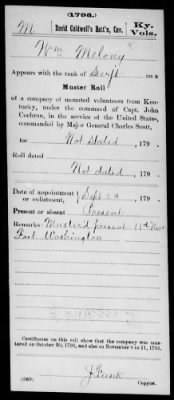 (1793.)
M David Caldwell's Batt'n, Cav. Ky. Vols.
Wm Molony
Appears with the rank of Serjt on a
Muster Roll
of a company of mounted volunteers from Kentucky, under the command of Capt. John
Cochran, in the service of the United States,
commanded by Major General Charles Scott,
for Not Stated, 179 .
Roll dated
Not dated, 179 .
Date of appointment or enlistment, Sept 29, 179 .
Present or absent Present
Remarks: Muster'd present 11th Nov
Fort Washington
Certificates on this roll show that the company was mustered on October 30, 1793, and also on November 9 to 11, 1793.
J Funk
(569) Copyist.